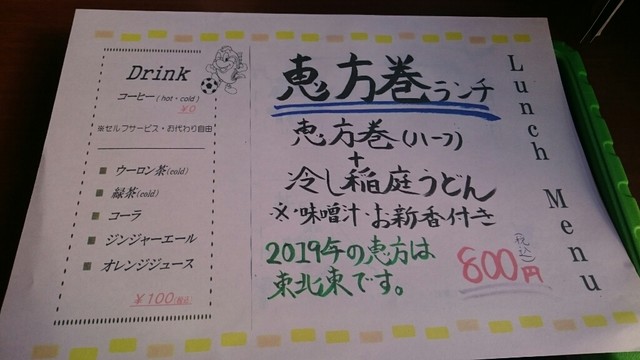 Drink
コーヒー(hot・cold)
¥0
※セルフサービス・お代わり自由
■ ウーロン茶(cold)
■ 緑茶(cold)
■ コーラ
■ ジンジャーエール
■ オレンジジュース
¥100(税込)
恵方巻ランチ
恵方巻(ハーフ)
+
冷し稲庭うどん
※・味噌汁・お新香付き
2019年の恵方は
東北東です。
(税込)
800円
Lunch Menu